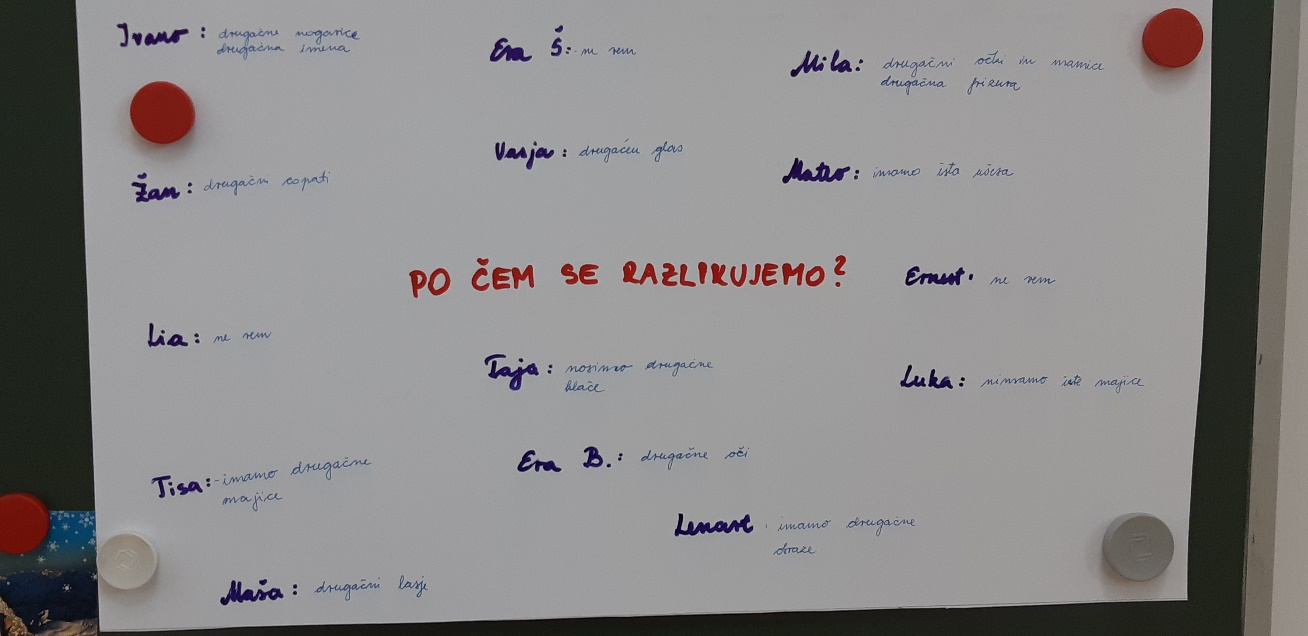 Ivano: drugačne nogavice
drugačna imena
Eva Š: ne vem
Mila: drugačni očki in mamice
drugačna frizura
Vasja: drugačen glas
Žan: drugačni copati
Mateo: imamo ista ušesa
PO ČEM SE RAZLIKUJEMO?
Ernest: ne vem
Lia: ne vem
Taja: nosimo drugačne
hlače
Luka: nimamo iste majice
Eva B.: drugačne oči
Tisa: - imamo drugačne
majice
Lenart: imamo drugačne
obraze
Maša: drugačni lasje